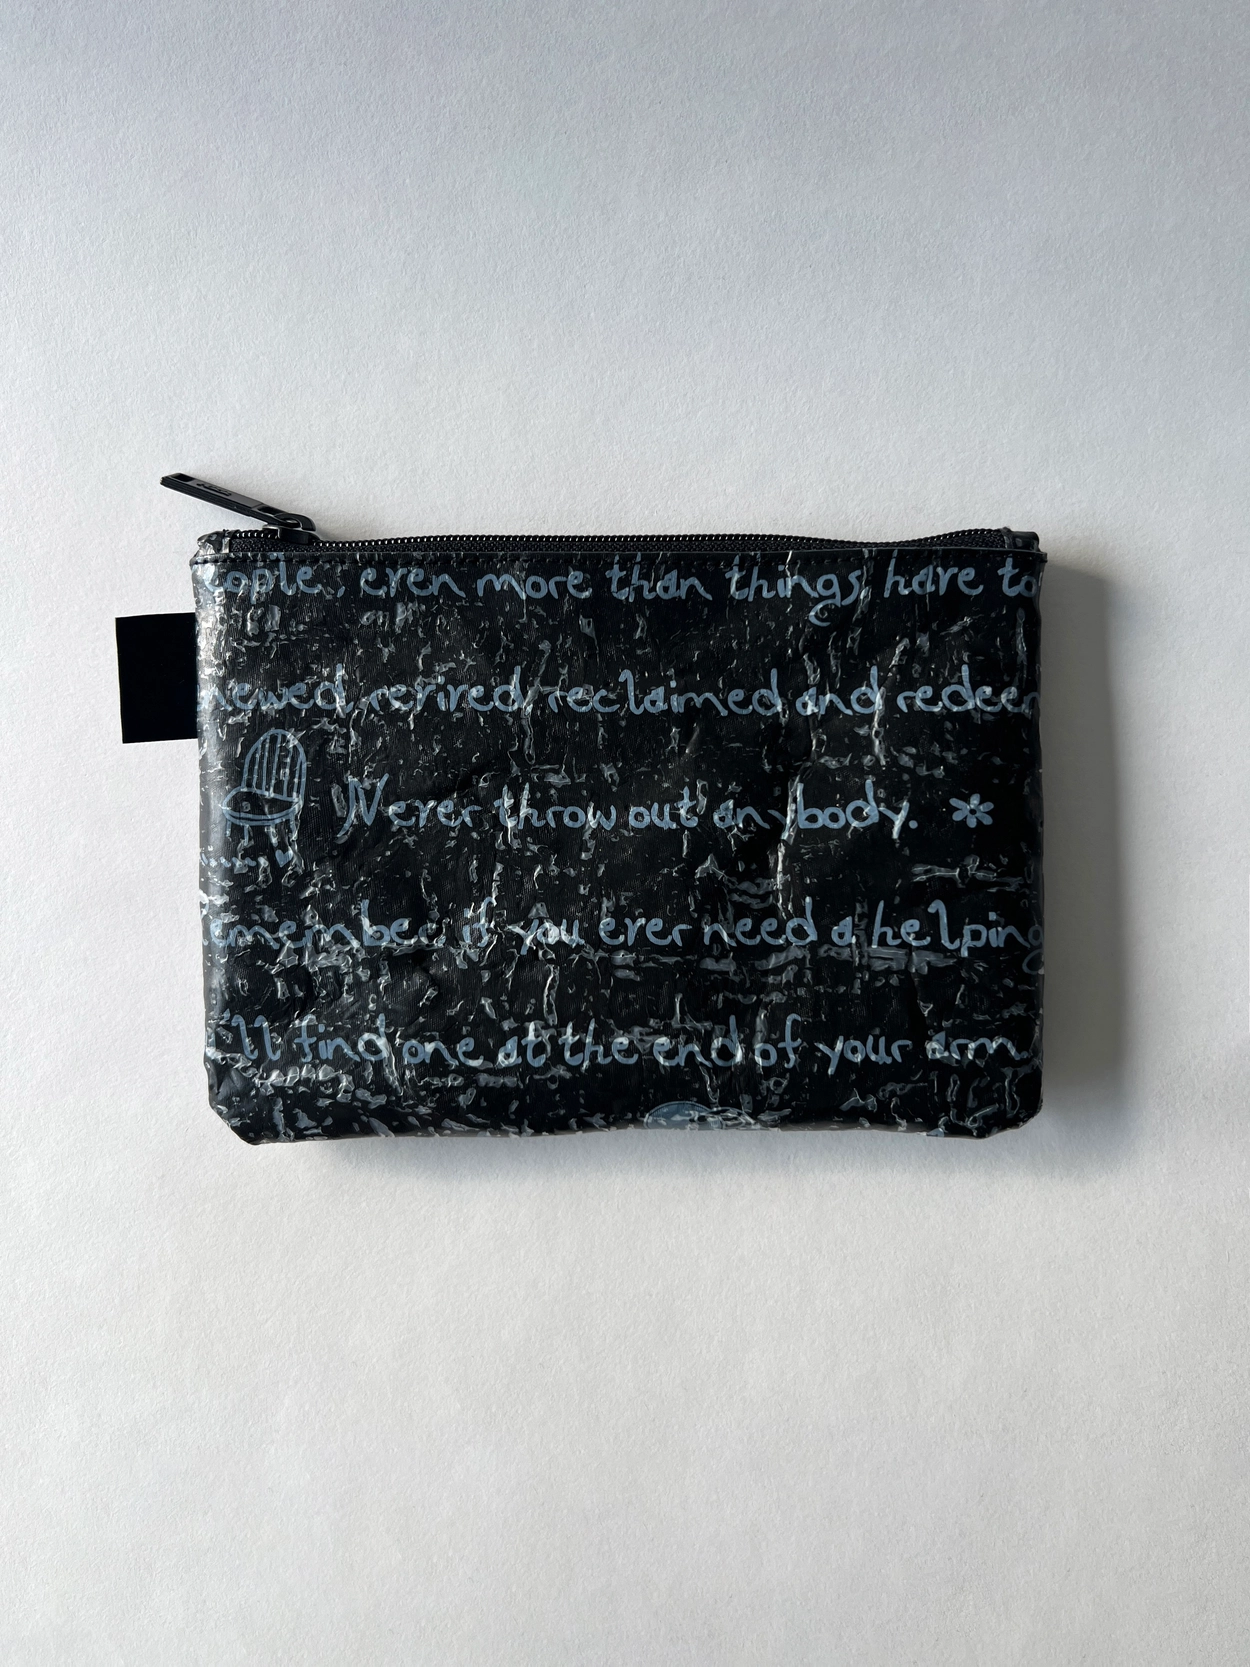 eople, even more than things, have to
newed, revived, reclaimed and redeem
Never throw out anybody.
emember, if you ever need a helping
'll find one at the end of your arm.